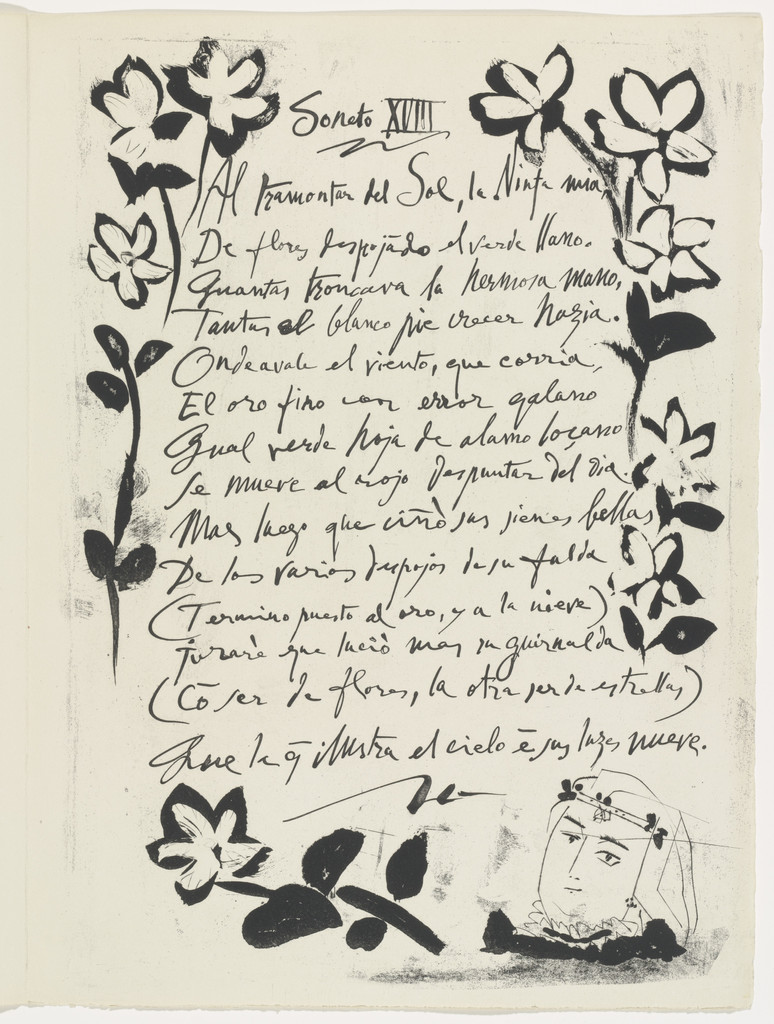 Soneto XVIII
Al tramontar del Sol, la Ninfa mia,
De flores despojãdo el verde llano.
Quantas troncava la hermosa mano,
Tantas el blanco pie crecer hazia.
Ondeavale el viento, que corria,
El oro fino con error galano
Qual verde hoja de alamo loçano
Se mueve al rojo despuntar del dia.
Mas luego que ciñò sus sienes bellas
De los varios despojos de su falda
(Termino puesto al oro, y a la nieve)
Jurarè que luciò mas su guirnalda
(Cõ ser de flores, la otra ser de estrellas)
Que la q̃ ilustra el cielo ẽ sus luzes nueve.